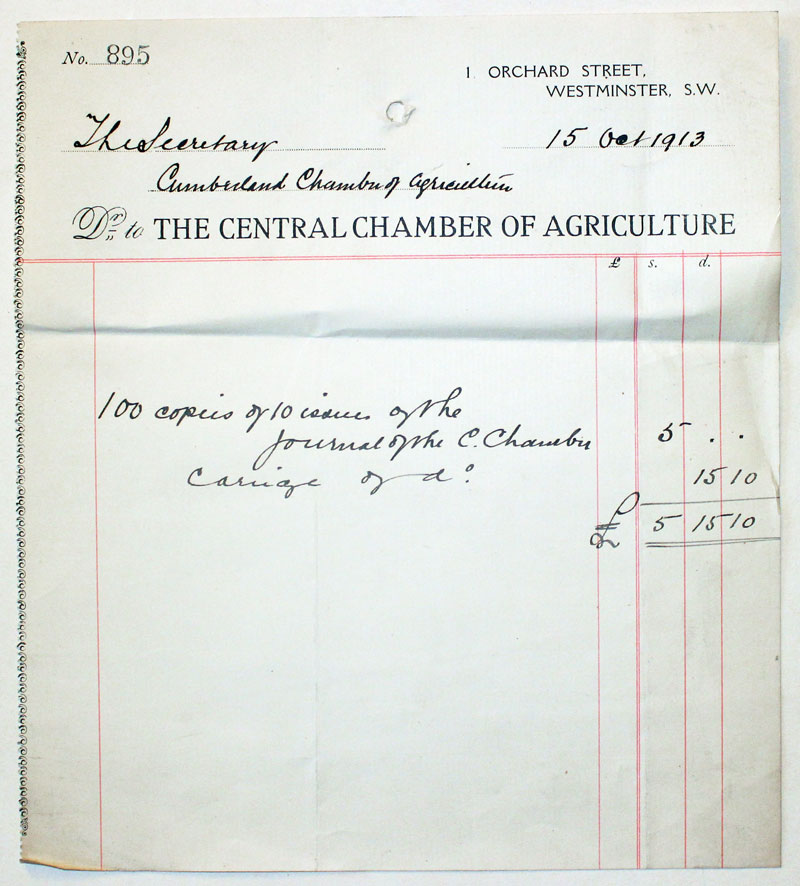 No. 895
1 ORCHARD STREET,
WESTMINSTER, S.W.
The Secretary
15 Oct 1913
Cumberland Chamber of Agriculture
Dr to THE CENTRAL CHAMBER OF AGRICULTURE
£ s. d.
100 copies of 10 issues of the
Journal of the C. Chamber 5 . .
Carriage of do. 15 10
£ 5 15 10